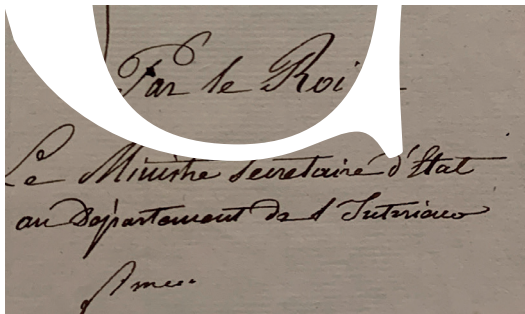 Par le Roi
Le Ministre Secretaire d'Etat
au Département de l'Intérieur